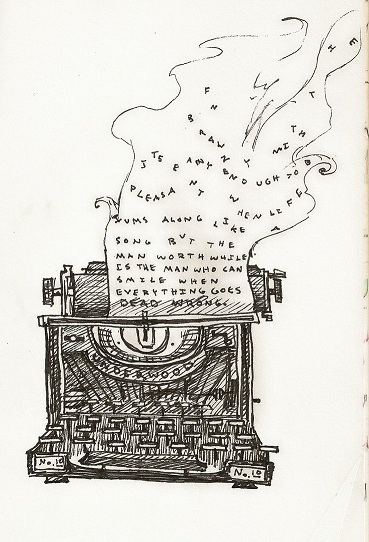 BRAWNY
ITS EASY ENOUGH TO B
PLEASANT WHEN LIFE
HUMS ALONG LIKE A
SONG BUT THE
MAN WORTH WHILE
IS THE MAN WHO CAN
SMILE WHEN
EVERYTHING GOES
DEAD WRONG.
UNDERWOOD
No. 10 No. 10